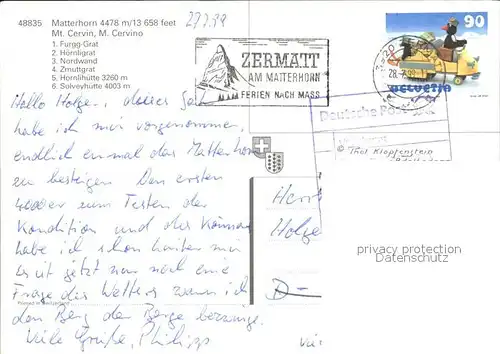 48835 Matterhorn 4478 m/13 658 feet
Mt. Cervin, M. Cervino
1. Furgg-Grat
2. Hörnligrat
3. Nordwand
4. Zmuttgrat
5. Hörnlihütte 3260 m
6. Solveyhütte 4003 m
ZERMATT
AM MATTERHORN
FERIEN NACH MASS
90
HELVETIA
Deutsche Post
© Thor Klopfenstein
Hallo Holger, dieses
habe ich mir vorgenommen,
endlich einmal das Matterhorn
zu besteigen. Den ersten
4000er zum Testen der
Kondition und des Können
habe ich schon hinter mir
Es ist jetzt nur noch eine
Frage des Wetters wann ich
den Berg der Berge bezwinge.
Viele Grüße, Philipp
Herrn
Holge
D-
privacy protection
Datenschutz